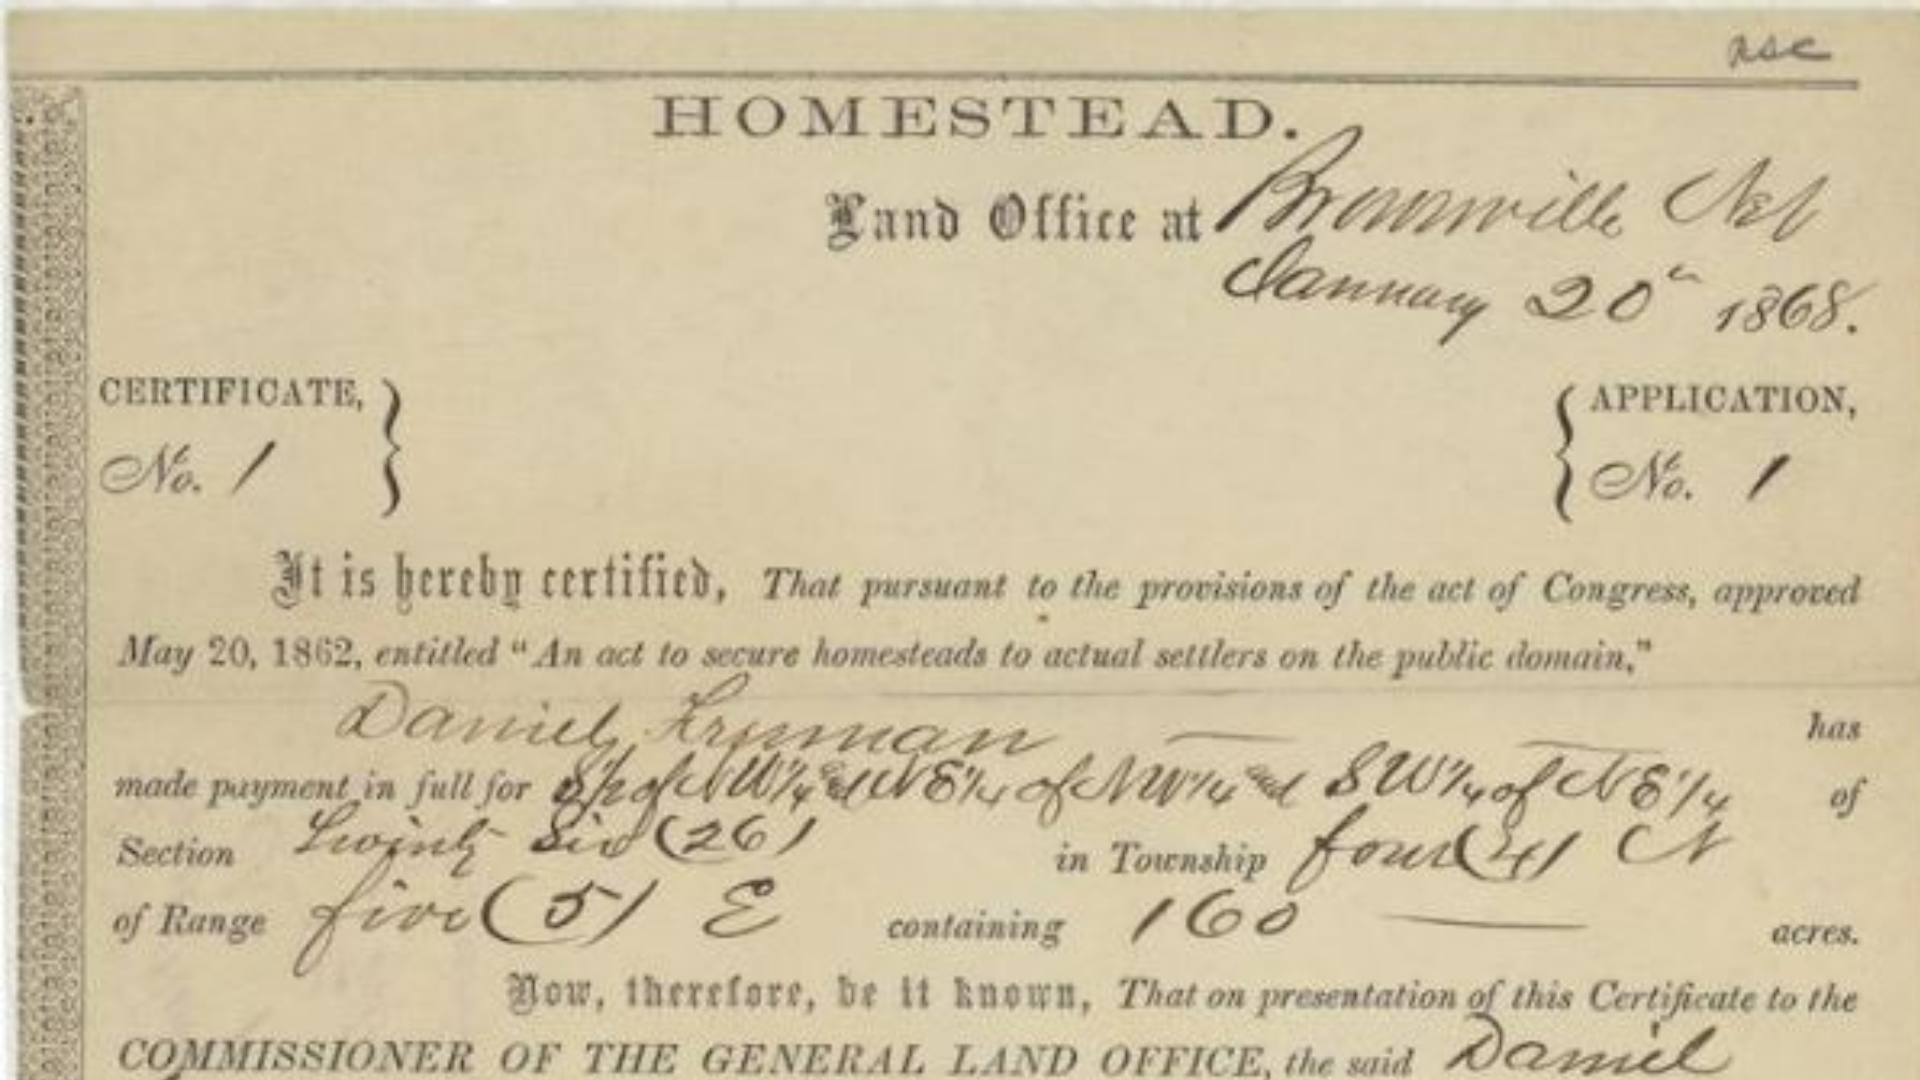 nsc
HOMESTEAD.
Land Office at Brownville Neb
January 20th 1868.
CERTIFICATE,
No. 1
APPLICATION,
No. 1
It is hereby certified, That pursuant to the provisions of the act of Congress, approved
May 20, 1862, entitled “An act to secure homesteads to actual settlers on the public domain,”
Daniel Freeman has
made payment in full for S½ of NW¼ and NE¼ of NW¼ and SW¼ of NE¼ of
Section Twenty Six (26) in Township four (4) N
of Range five (5) E containing 160 acres.
Now, therefore, be it known, That on presentation of this Certificate to the
COMMISSIONER OF THE GENERAL LAND OFFICE, the said Daniel